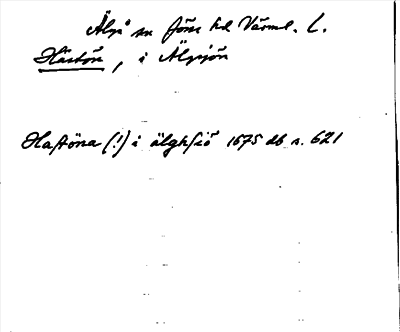 Älgå sn Jösse hd Värml. L.
Hästön, i Älgsjön
Hastöna (!) i älghsiö 1675 db s. 621